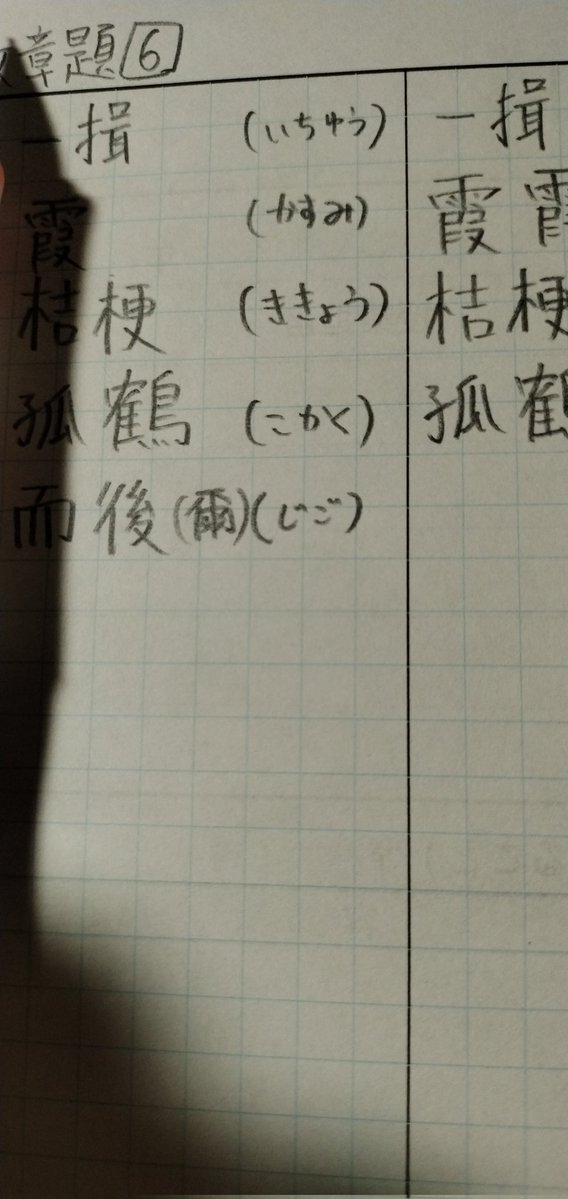 章題 6
一揖 (いちゆう) 一揖
霞 (かすみ) 霞 霞
桔梗 (ききょう) 桔梗
孤鶴 (こかく) 孤
而後(爾)(じご)